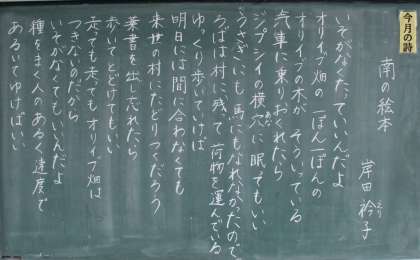 今月の詩
南の絵本
岸田 衿子
えり
いそがなくたっていいんだよ
オリイブ畑の 一ぽん一ぽんの
オリイブの木が そう いっている
汽車に乗りおくれたら
ジプシイの横穴に 眠ってもいい
あな
うさぎにも 馬にもなれなかったので
ろばは村に残って 荷物を運んでいる
ゆっくり歩いていけば
明日には間に合わなくても
来世の村に たどりつくだろう
葉書を出し忘れたら
歩いてとどけてもいい
走っても走っても オリイブ畑は
つきないのだから
いそがなくてもいいんだよ
種をまく人のあるく速度で
あるいてゆけばいい